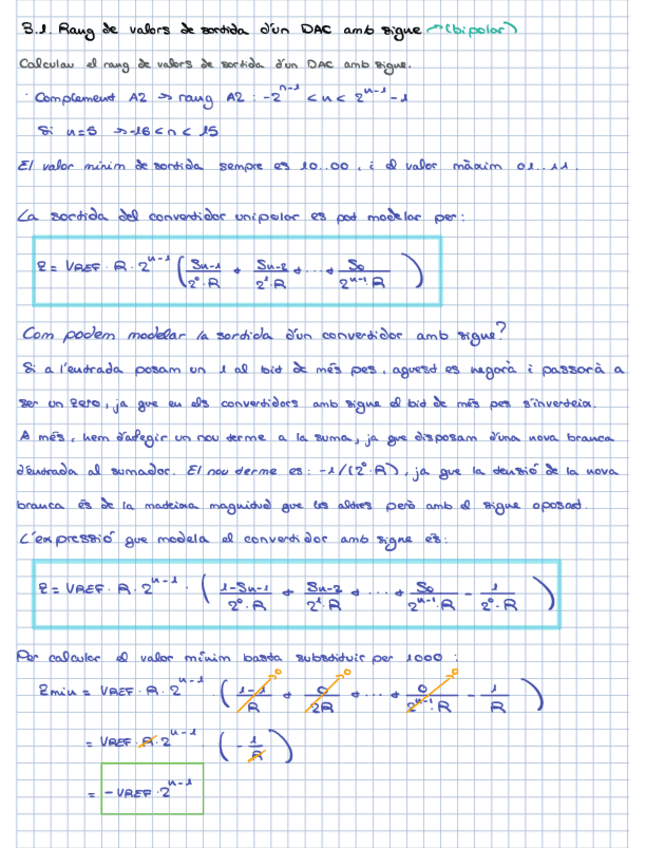 3.1. Rang de valors de sortida d'un DAC amb signe → (bipolar)
Calculau el rang de valors de sortida d'un DAC amb signe.
· Complement A2 → rang A2 : -2^{n-1} < n < 2^{n-1} - 1
Si n=5 → -16 < n < 15
El valor mínim de sortida sempre es 10..00 , i el valor màxim 01..11 .
La sortida del convertidor unipolar es pot modelar per:
Z = VREF · R · 2^{n-1} ( Sn-1/(2^0 · R) + Sn-2/(2^1 · R) + ... + S0/(2^{n-1} · R) )
Com podem modelar la sortida d'un convertidor amb signe?
Si a l'entrada posam un 1 al bit de més pes, aquest es negarà i passarà a
ser un zero, ja que en els convertidors amb signe el bit de més pes s'inverteix.
A més, hem d'afegir un nou terme a la suma, ja que disposam d'una nova branca
d'entrada al sumador. El nou terme es: -1/(2^0 · R), ja que la tensió de la nova
branca és de la mateixa magnitud que les altres però amb el signe oposat.
L'expressió que modela el convertidor amb signe és:
Z = VREF · R · 2^{n-1} · ( (1-Sn-1)/(2^0 · R) + Sn-2/(2^1 · R) + ... + S0/(2^{n-1} · R) - 1/(2^0 · R) )
Per calcular el valor mínim basta substituir per 1000 :
Zmin = VREF · R · 2^{n-1} ( (1-1)/R → 0 + 0/2R → 0 + ... + 0/(2^{n-1} · R) → 0 - 1/R )
= VREF · R · 2^{n-1} · ( - 1/R )
= - VREF · 2^{n-1}